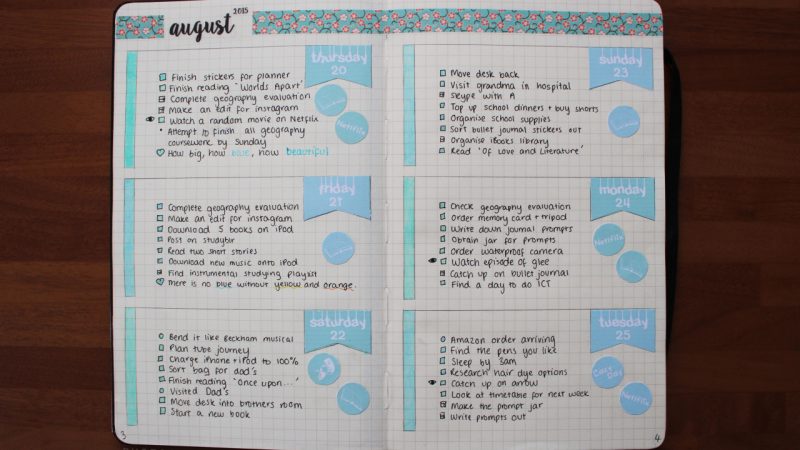 august 2015
thursday
20
Finish stickers for planner
Finish reading 'Worlds Apart'
Complete geography evaluation
Make an edit for instagram
Watch a random movie on Netflix
Attempt to finish all geography
coursework by Sunday
How big, how blue, how beautiful
Netflix
friday
21
Complete geography evaluation
Make an edit for instagram
Download 5 books on iPod
Post on studyblr
Read two short stories
Download new music onto iPod
Find instrumental studying playlist
There is no blue without yellow and orange.
saturday
22
Bend it like Beckham musical
Plan tube journey
Charge iPhone + iPod to 100%
Sort bag for dad's
Finish reading 'Once upon...'
Visited Dad's
Move desk into brothers room
Start a new book
3
sunday
23
Move desk back
Visit grandma in hospital
Skype with A
Top up school dinners + buy shorts
Organise school supplies
Sort bullet journal stickers out
Organise iBooks library
Read 'Of Love and Literature'
monday
24
Check geography evaluation
Order memory card + tripod
Write down journal prompts
Obtain jar for prompts
Order waterproof camera
Watch episode of glee
Catch up on bullet journal
Find a day to do ICT
Netflix
tuesday
25
Amazon order arriving
Find the pens you like
Sleep by 3am
Research hair dye options
Catch up on arrow
Look at timetable for next week
Make the prompt jar
Write prompts out
4